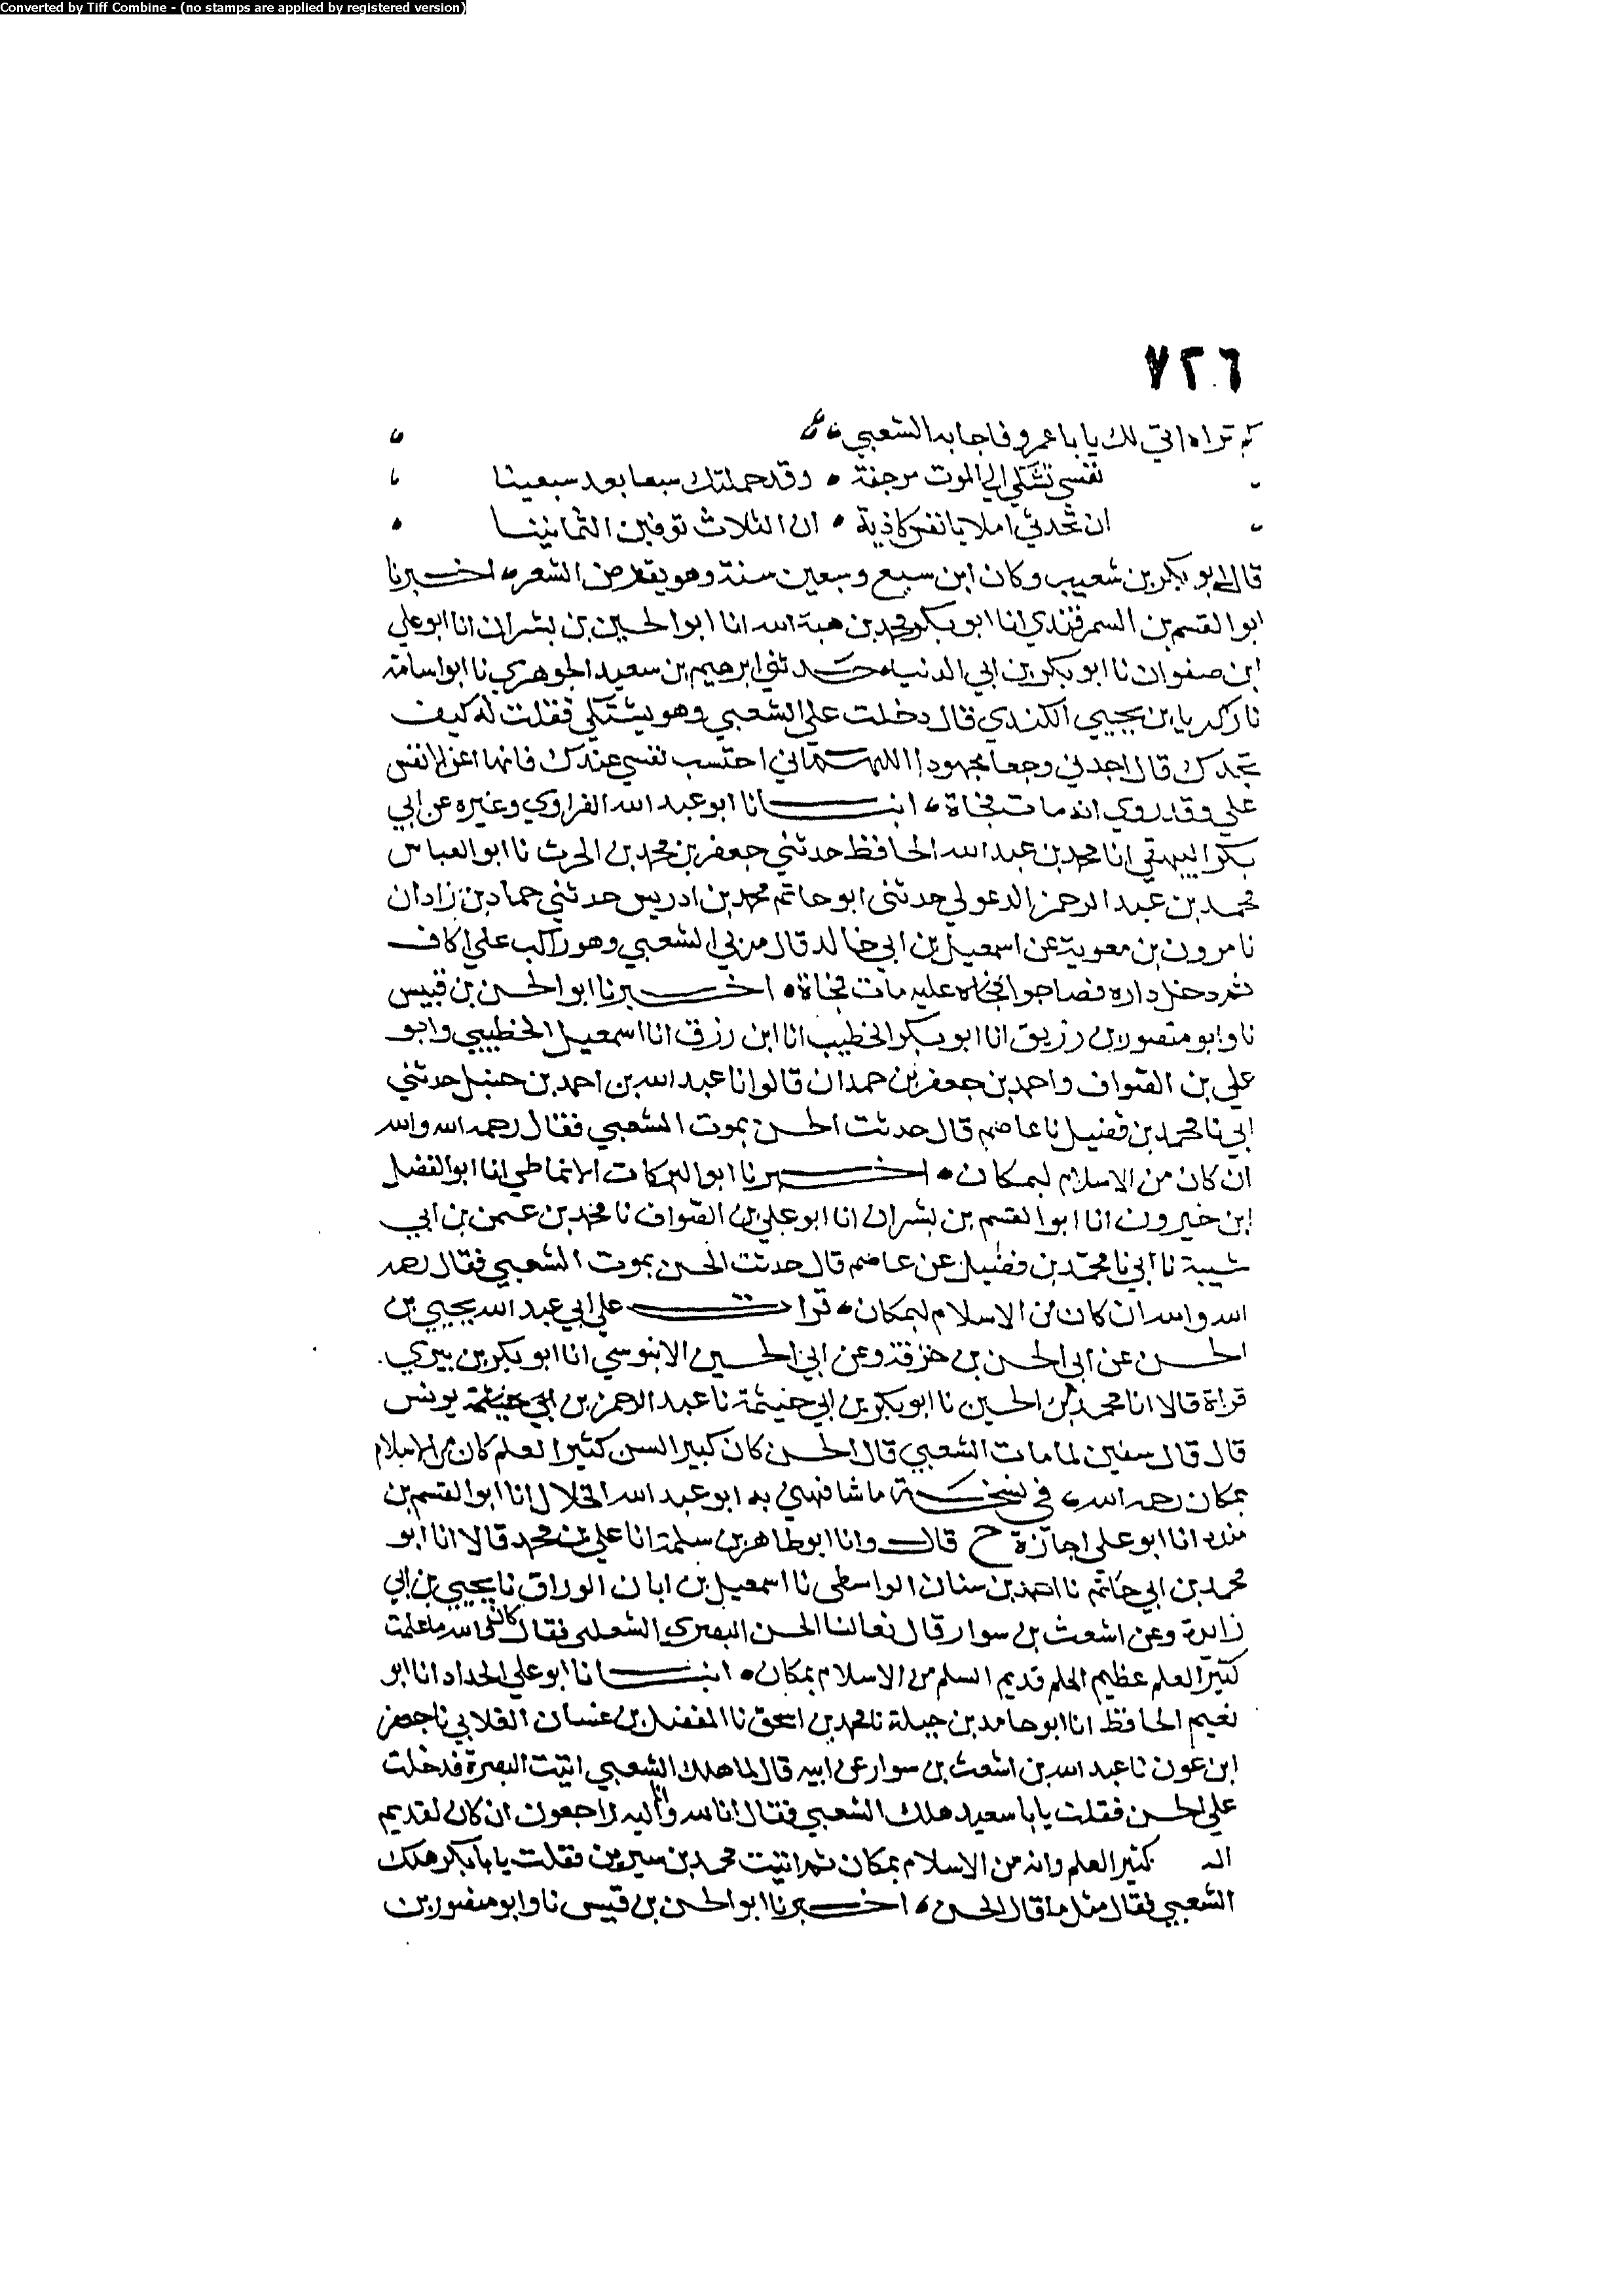 Converted by Tiff Combine - (no stamps are applied by registered version)
٧٢٦
كم تراه اتى لك يا با عمرو فاجابه الشعبي
نفسي تشكى الي الموت مرجفة • وقد حملتك سبعا بعد سبعينا
ان تحدثي املا يا نفس كاذبة • ان الثلاث توفين الثمانينا
قال ابو بكر بن شعيب وكان ابن سبع وسبعين سنة وهو يقرض الشعر اخبرنا
ابو القسم بن السمرقندي انا ابو بكر محمد بن هبة الله انا ابو الحسين بن بشران انا ابو علي
ابن صفوان نا ابو بكر بن ابي الدنيا حدثني ابرهيم بن سعيد الجوهري نا ابو اسامة
نا زكريا بن يحيي الكندي قال دخلت على الشعبي وهو يشتكي فقلت له كيف
تجدك قال اجدني وجعا مجهودا اللهم اني احتسب نفسي عندك فانها اعز الانفس
علي وقد روي انه مات فجاة انبانا ابو عبد الله الفراوي وغيره عن ابي
بكر البيهقي انا محمد بن عبد الله الحافظ حدثني جعفر بن محمد بن الحرث نا ابو العباس
محمد بن عبد الرحمن الدغولي حدثنى ابو حاتم محمد بن ادريس حدثني حماد بن زاذان
نا مرون بن معوية عن اسمعيل بن ابي خالد قال مر بي الشعبي وهو راكب على اكاف
ثم دخل داره فصاحوا عليه مات فجاة • اخبرنا ابو الحسن بن قبيس
نا وابو منصور بن رزيق انا ابو بكر الخطيب انا ابن رزق انا اسمعيل الخطبي وابو
علي بن الصواف واحمد بن جعفر بن حمدان قالوا نا عبد الله بن احمد بن حنبل حدثني
ابي نا محمد بن فضيل نا عاصم قال حدثت الحسن بموت الشعبي فقال رحمه الله والله
ان كان من الاسلام لبمكان • اخبرنا ابو البركات الانماطي انا ابو الفضل
ابن خيرون انا ابو القسم بن بشران انا ابو علي بن الصواف نا محمد بن عثمن بن ابي
شيبة نا ابي نا محمد بن فضيل عن عاصم قال حدثت الحسن بموت الشعبي فقال رحمه
الله والله ان كان من الاسلام لبمكان • قرات على ابي عبد الله يحيي بن
الحسن عن ابي الحسن بن خزفة وعن ابي الحسين الابنوسي انا ابو بكر بن بيري
قراة قالا انا محمد بن الحسين نا ابو بكر بن ابي خيثمة نا عبد الرحمن بن يونس
قال قال سفين لما مات الشعبي قال الحسن كان كبير السن كثير العلم كان من الاسلام
بمكان رحمه الله في نسخة ما شافهني به ابو عبد الله الخلال انا ابو القسم بن
منده انا ابو على اجازة ح قال وانا ابو طاهر بن سلمة انا علي بن محمد قالا انا ابو
محمد بن ابي حاتم نا احمد بن سنان الواسطى نا اسمعيل بن ابان الوراق نا يحيي بن ابي
زايدة وعن اشعث بن سوار قال نعا لنا الحسن البصري الشعبي فقال كان والله ما علمت
كثير العلم عظيم الحلم قديم السلم من الاسلام بمكان • انبانا ابو علي الحداد انا ابو
نعيم الحافظ انا ابو حامد بن جبلة نا محمد بن اسحق نا المفضل بن غسان الغلابي نا جعفر
ابن عون نا عبد الله بن اشعث بن سوار عن ابيه قال لما هلك الشعبي اتيت البصرة فدخلت
على الحسن فقلت يا با سعيد هلك الشعبي فقال انا لله وانا اليه راجعون ان كان لقديم
كثير العلم وانه من الاسلام بمكان ثم اتيت محمد بن سيرين فقلت يا با بكر هلك
الشعبي فقال مثل ما قال الحسن • اخبرنا ابو الحسن بن قبيس نا وابو منصور بن